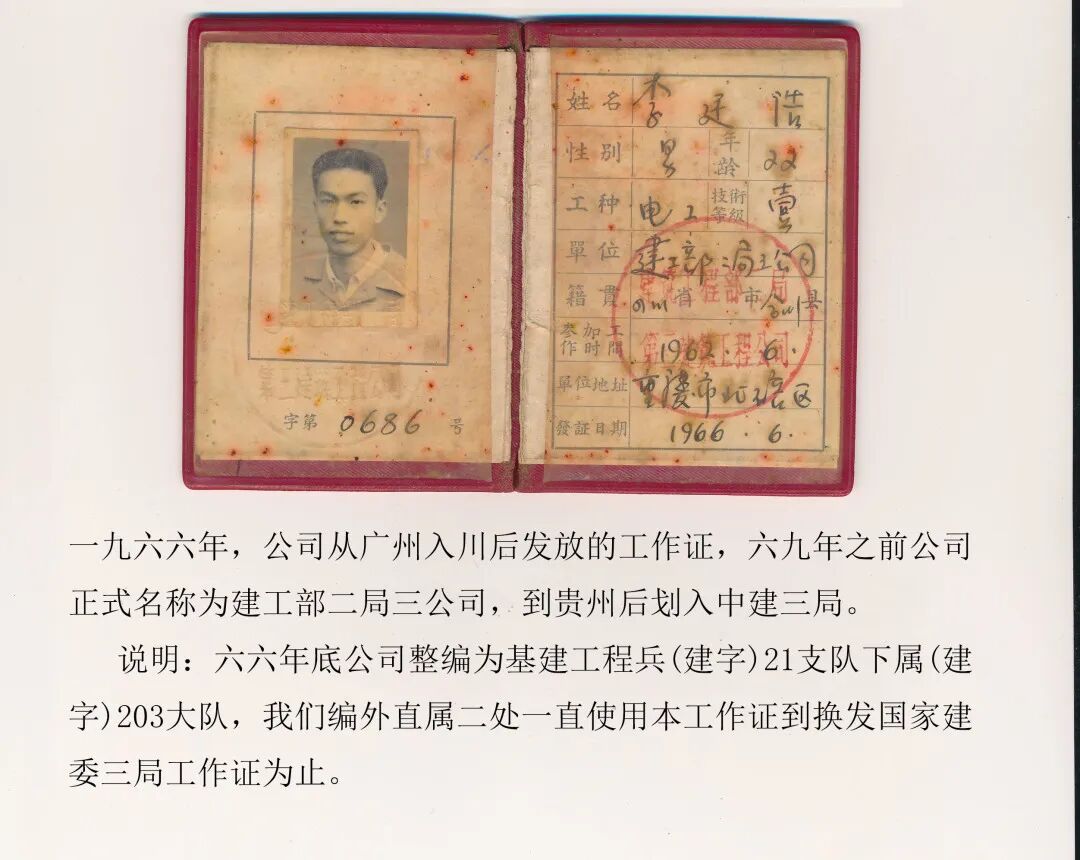 字第 0686 号
姓名 李廷浩
性别 男 年龄 22
工种 电工 技術等級 壹
單位 建工部二局三公司
籍貫 四川省 市 合川县
参加工作時間 1962.6.
單位地址 重慶市北碚区
發証日期 1966.6.
一九六六年，公司从广州入川后发放的工作证，六九年之前公司
正式名称为建工部二局三公司，到贵州后划入中建三局。
说明：六六年底公司整编为基建工程兵(建字)21支队下属(建
字)203大队，我们编外直属二处一直使用本工作证到换发国家建
委三局工作证为止。